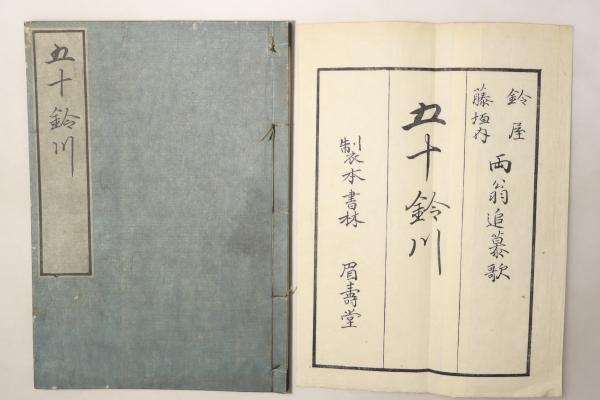 五十鈴川
鈴屋
藤垣内
両翁追慕歌
五十鈴川
製本書林 眉壽堂